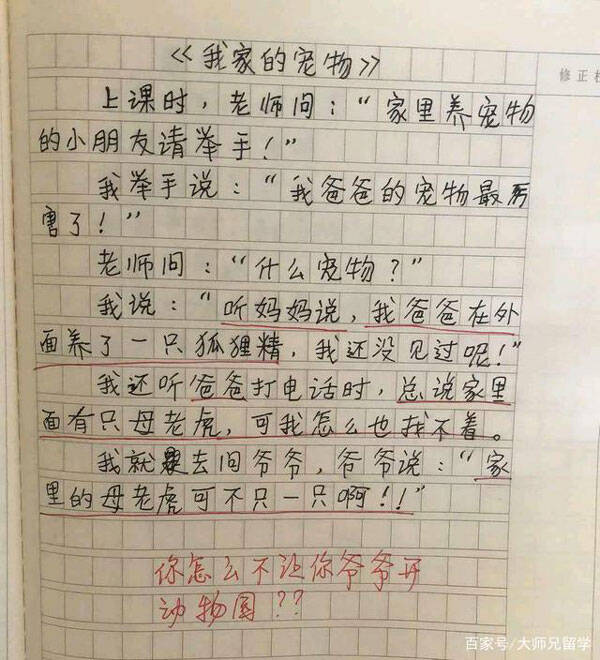 《我家的宠物》
修正栏
上课时，老师问：“家里养宠物
的小朋友请举手！”
我举手说：“我爸爸的宠物最厉
害了！”
老师问：“什么宠物？”
我说：“听妈妈说，我爸爸在外
面养了一只狐狸精，我还没见过呢！”
我还听爸爸打电话时，总说家里
面有只母老虎，可我怎么也找不着。
我就去问爷爷，爷爷说：“家
里的母老虎可不只一只啊！！”
你怎么不让你爷爷开
动物园？？
百家号/大师兄留学